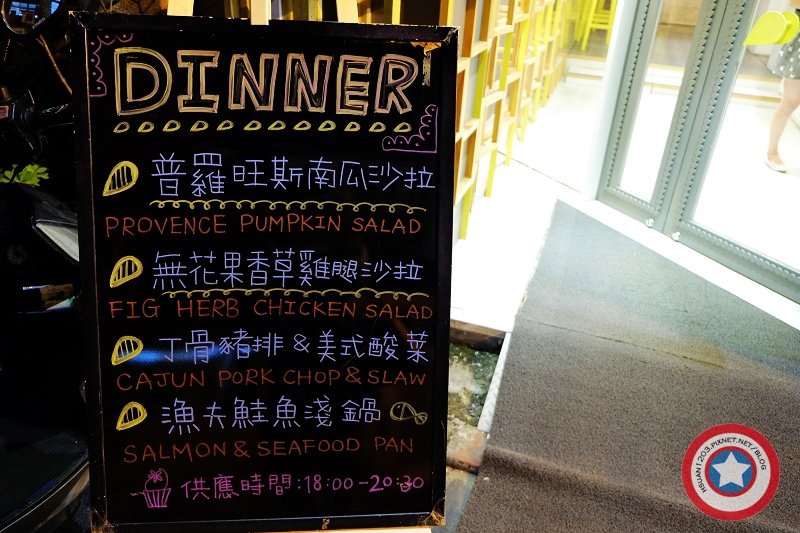 DINNER
普羅旺斯南瓜沙拉
PROVENCE PUMPKIN SALAD
無花果香草雞腿沙拉
FIG HERB CHICKEN SALAD
丁骨豬排 & 美式酸菜
CAJUN PORK CHOP & SLAW
漁夫鮭魚淺鍋
SALMON & SEAFOOD PAN
供應時間:18:00-20:30
HSUAN1203.PIXNET.NET/BLOG